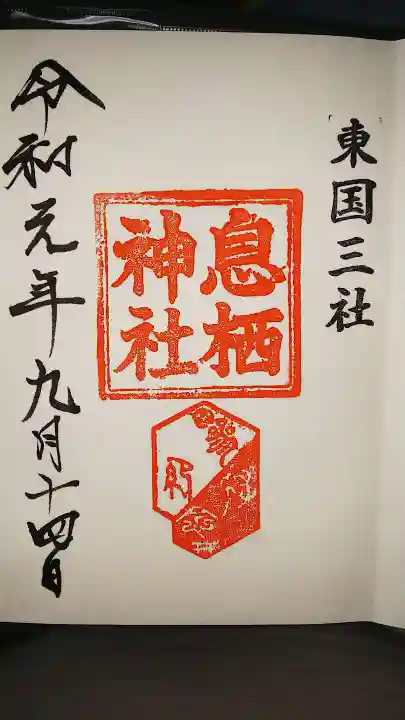 東国三社
息栖
神社
令和元年九月十四日